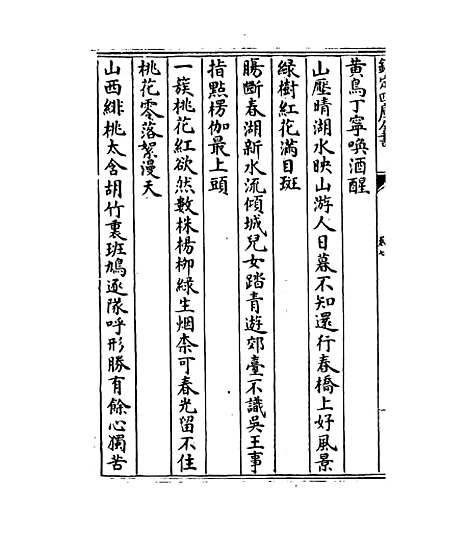 欽定四庫全書
卷七
黄鳥丁寧喚酒醒
山壓晴湖水映山游人日暮不知還行春橋上好風景
緑樹紅花滿目斑
腸斷春湖新水流傾城兒女踏青遊郊臺不識吳王事
指點楞伽最上頭
一簇桃花紅欲然數株楊柳緑生烟柰可春光留不住
桃花零落絮漫天
山西緋桃太含胡竹裏班鳩逐隊呼形勝有餘心獨苦